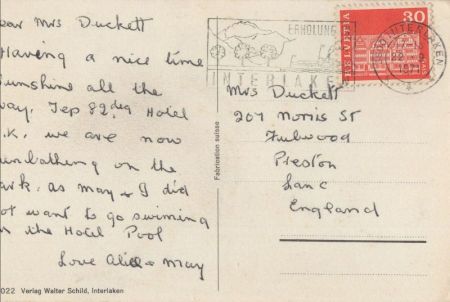 ear Mrs Duckett
Having a nice time
unshine all the
way, Tep 82 deg Hotel
.K. we are now
unbathing on the
ark. as may & I did
ot want to go swiming
n the Hotel Pool
Love Alice & May
022 Verlag Walter Schild, Interlaken
Fabrication suisse
ERHOLUNG
INTERLAKEN
HELVETIA
80
INTERLAKEN
1971
Mrs Duckett
207 Norris St
Fulwood
Preston
Lanc
England